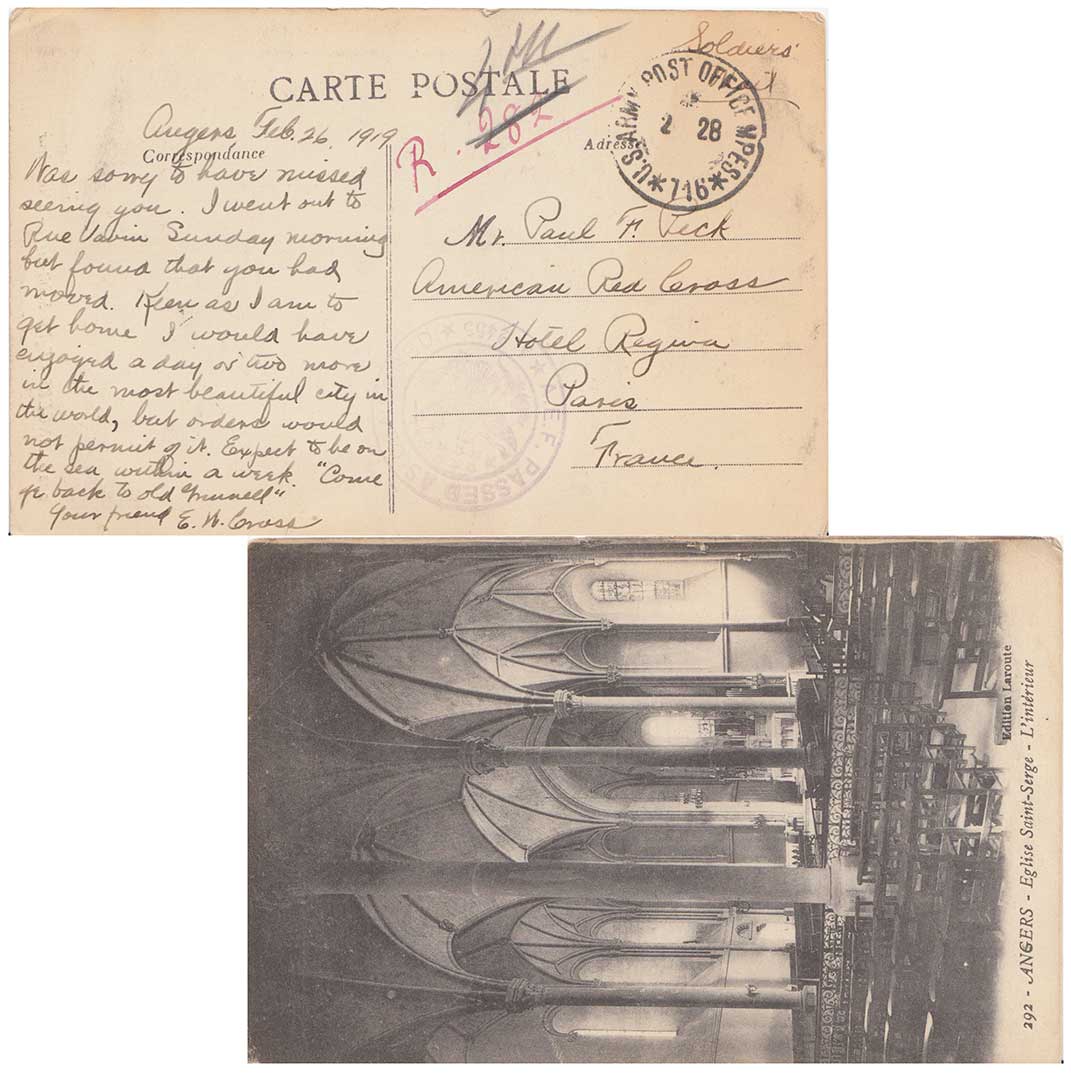 Soldiers'
CARTE POSTALE
R. 282
U.S. ARMY POST OFFICE M.P.E.S. * 716 *
2 28
Angers Feb. 26, 1919
Correspondance
Adresse
Was sorry to have missed
seeing you. I went out to
Rue Vavin Sunday morning
but found that you had
moved. Keen as I am to
get home I would have
enjoyed a day or two more
in the most beautiful city in
the world, but orders would
not permit of it. Expect to be on
the sea within a week. "Come
ye back to old Grinnell"
Your friend E. W. Cross
Mr. Paul F. Peck
American Red Cross
Hotel Regina
Paris
France.
A.E.F. PASSED AS
Edition Laroute
292 - ANGERS - Eglise Saint-Serge - L'intérieur